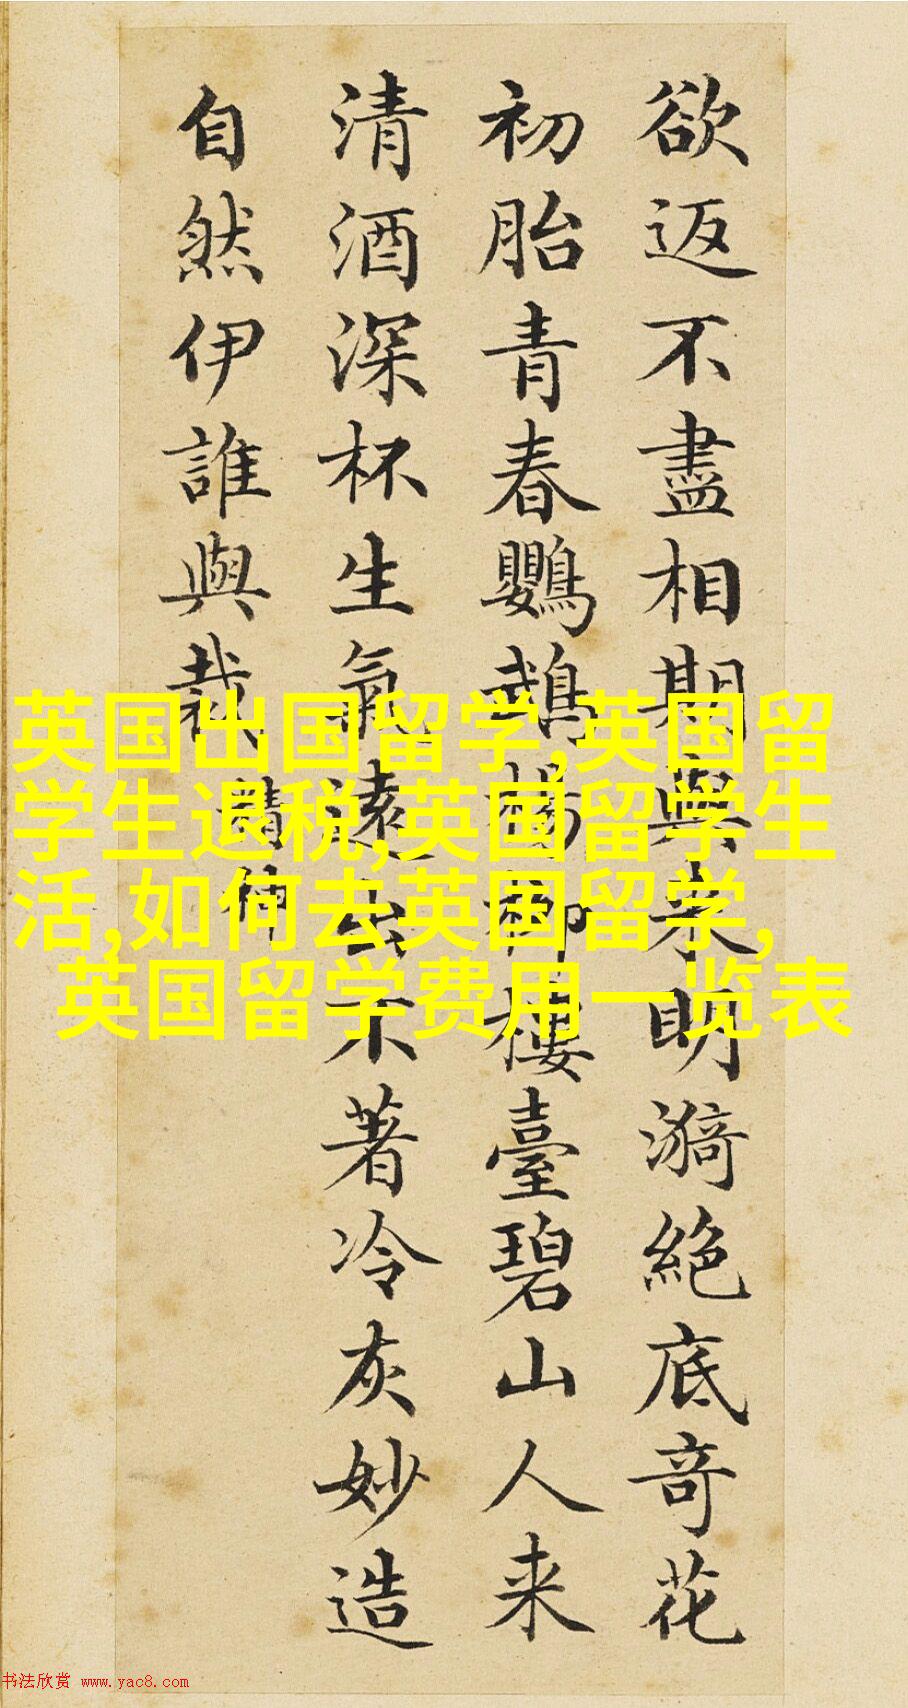 欲返不盡相期與来明漪絕底奇花
初胎青春鸚鵡楊柳樓臺碧山人来
清酒深杯生氣遠出不著冷灰妙造
自然伊誰與裁
精神
英国出国留学,英国留
学生退税,英国留学生
活,如何去英国留学,
英国留学费用一览表
书法欣赏 www.yac8.com